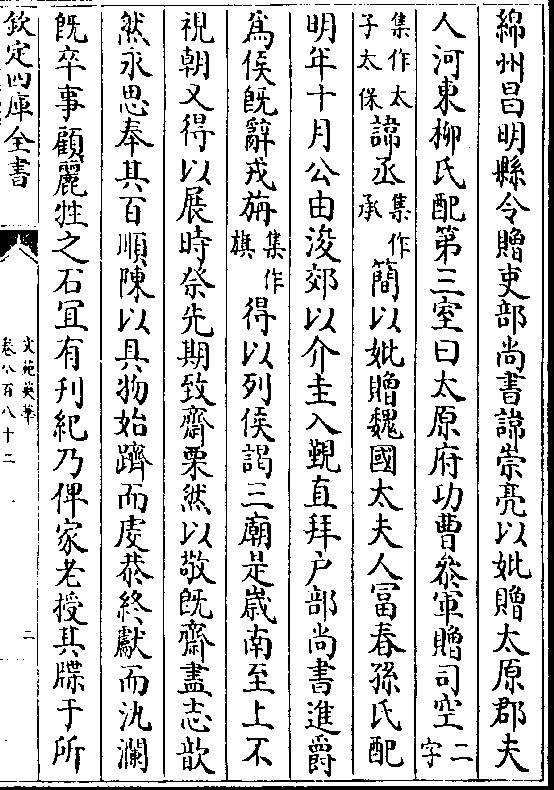 綿州昌明縣令贈吏部尚書諱崇亮以妣贈太原郡夫
人河東柳氏配第三室曰太原府功曹叅軍贈司空二字
集作太子太保諱丞集作承簡以妣贈魏國太夫人富春孫氏配
明年十月公由浚郊以介圭入覲直拜户部尚書進爵
為侯旣辭戎旃集作旗得以列侯謁三廟是嵗南至上不
視朝又得以展時祭先期致齋栗然以敬旣齋盡志歆
然永思奉其百順陳以具物始躋而䖍恭終獻而汍瀾
旣卒事顧麗牲之石宜有刋紀乃俾家老授其牒于所
欽定四庫全書
文苑英華
卷八百八十二
二